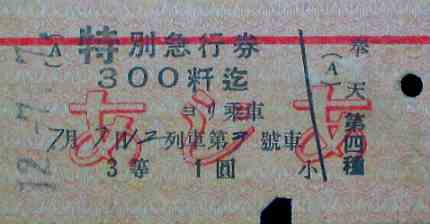 (A) 特別急行券
300粁迄
ヨリ乗車
7月 列車第 號車
3等 1圓
小
(A)
奉天第四種
12.-7
あじあ